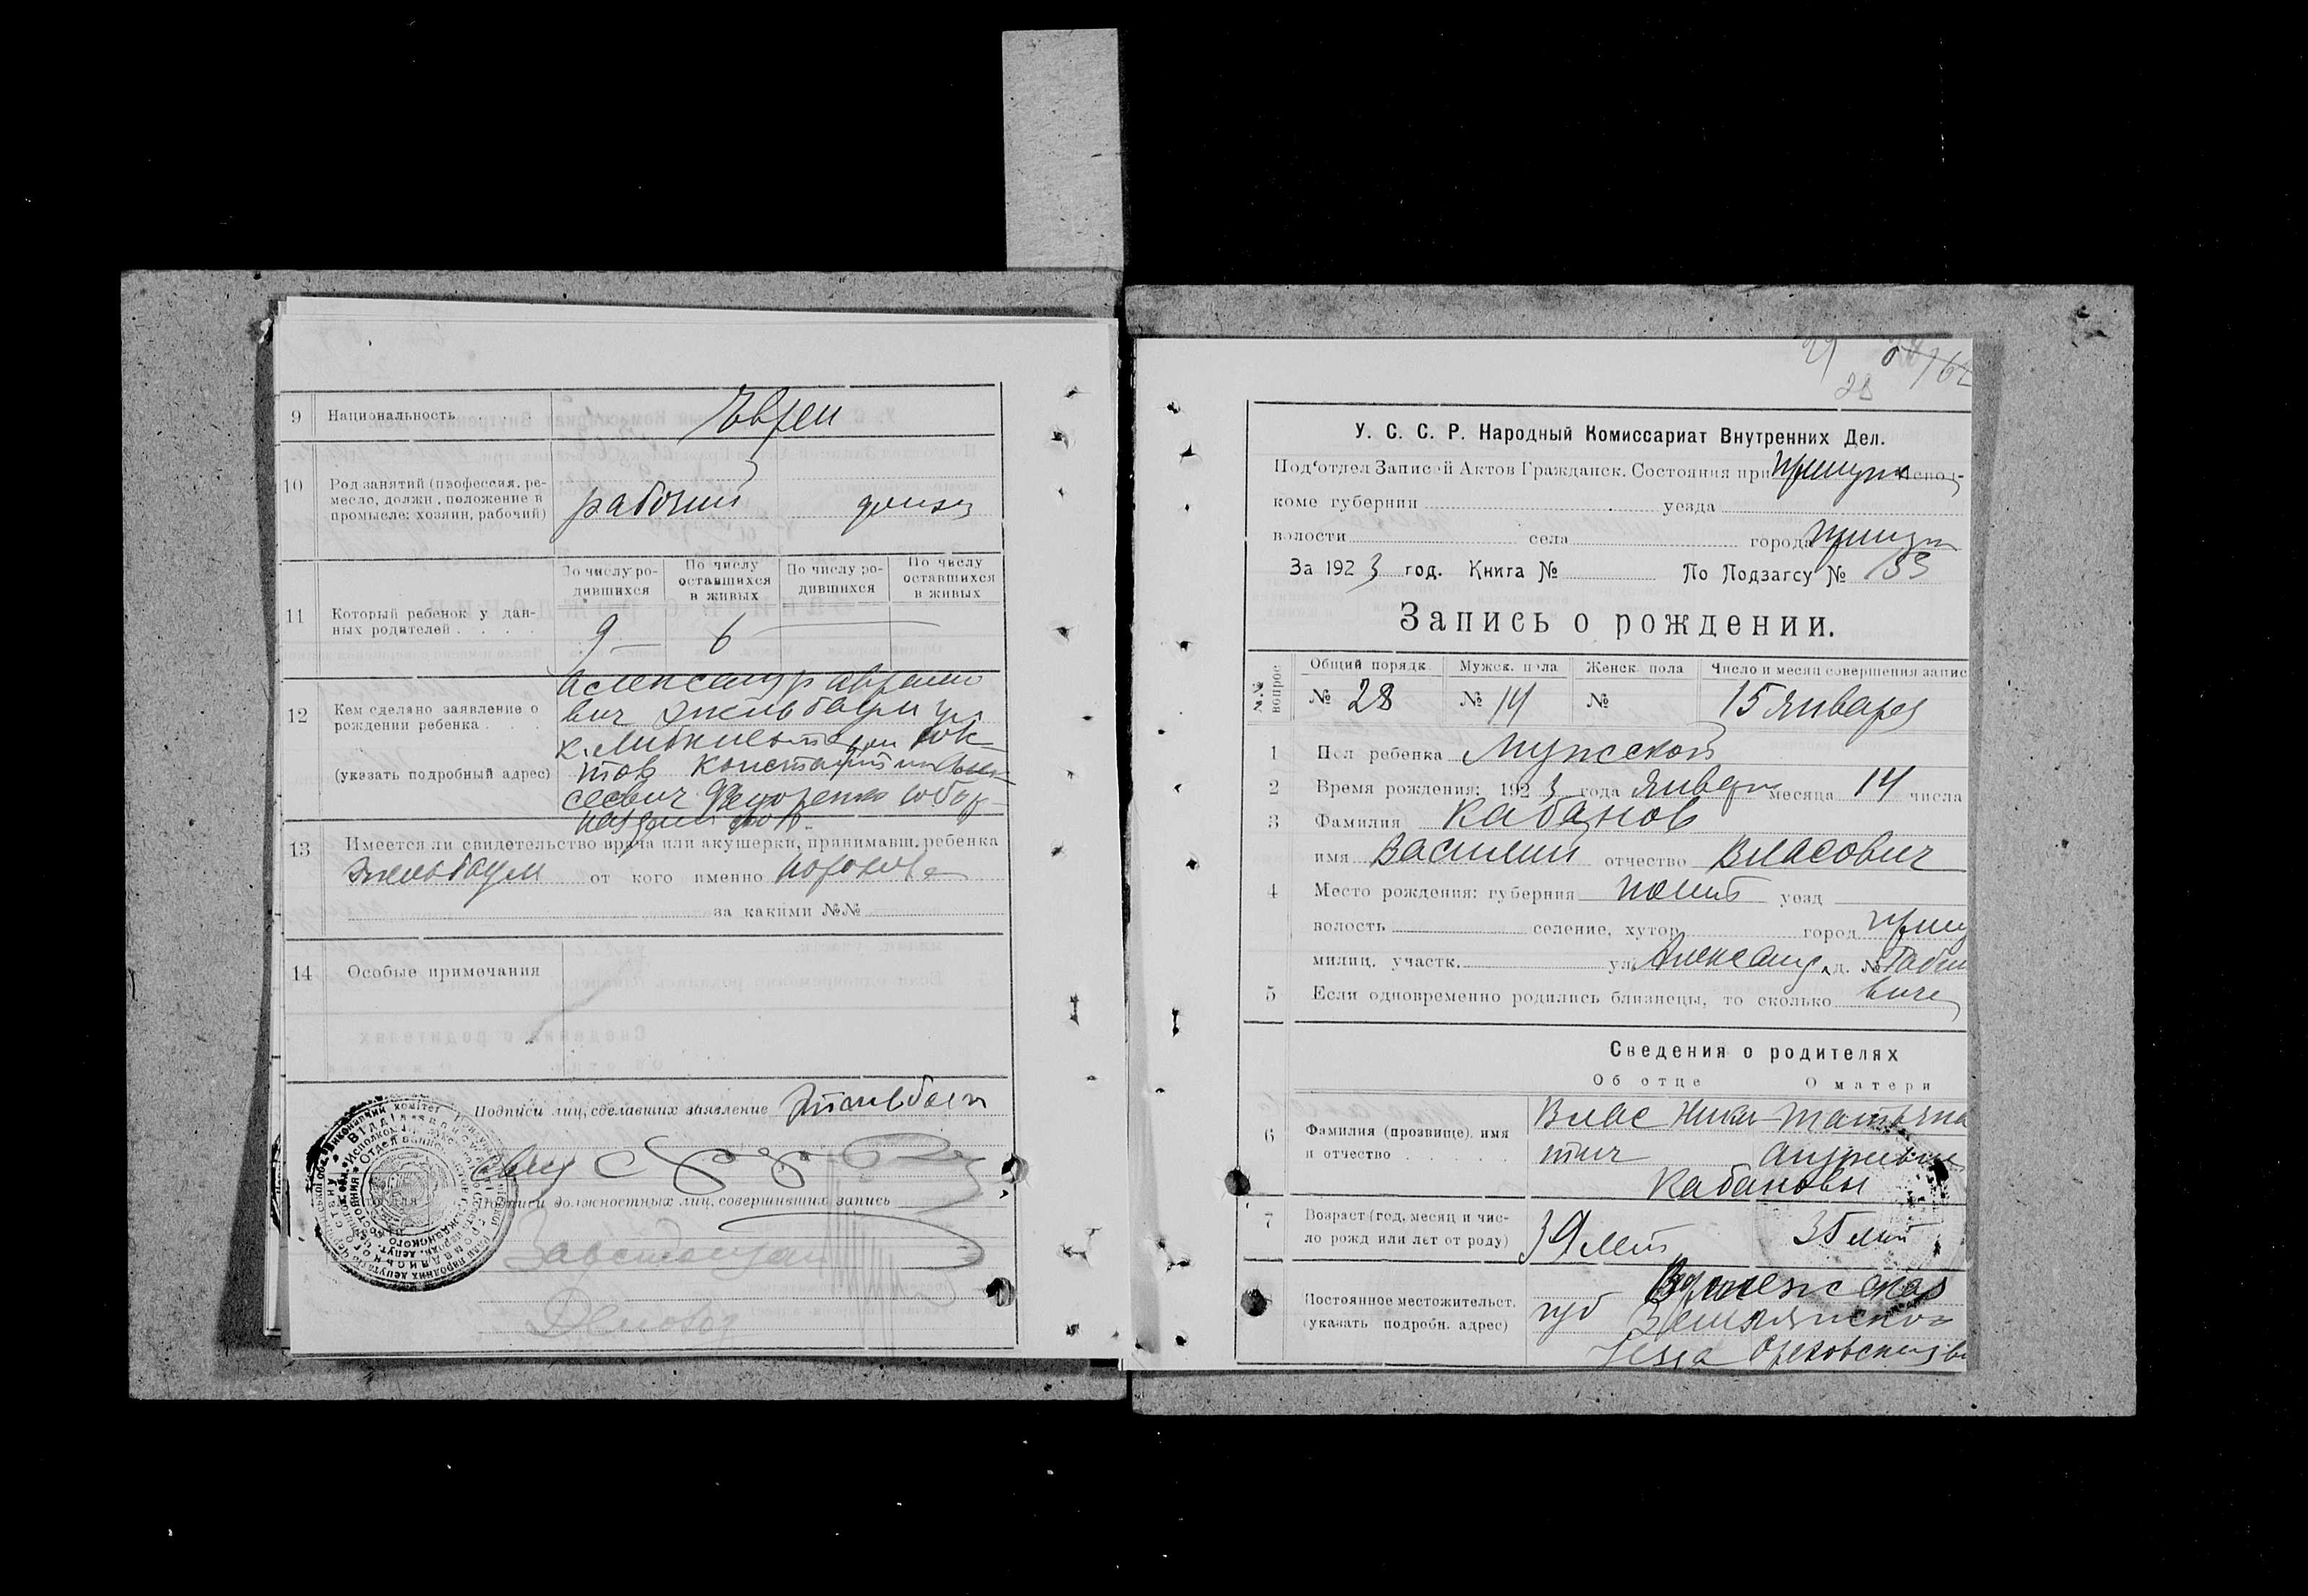 9 Национальность Евреи
10 Род занятий (профессия, ре-
месло, должн, положение в
промысле: хозяин, рабочий) рабочий домхоз
По числу ро-
дившихся
По числу
оставшихся
в живых
По числу ро-
дившихся
По числу
оставшихся
в живых
11 Который ребенок у дан-
ных родителей . . . . 9 — 6 —
12 Кем сделано заявление о
рождении ребенка . . .
(указать подробный адрес)
Александр Аврамо
вич
Константин Алек
сеевич Федоренко
13 Имеется ли свидетельство врача или акушерки, принимавш. ребенка
от кого именно
за какими №№
14 Особые примечания
Подписи лиц, сделавших заявление
Подписи должностных лиц, совершивших запись
Завстолом
Деловод
29 28
У. С. С. Р. Народный Комиссариат Внутренних Дел.
Под'отдел Записей Актов Гражданск. Состояния при Прилук испол-
коме губернии уезда
волости села города Прилук
За 1923 год. Книга № По Подзагсу № 133
Запись о рождении.
№№ вопрос
Общий порядк Мужск. пола Женск пола Число и месяц совершения запис
№ 28 № 14 № 15 Января
1 Пол ребенка Мужской
2 Время рождения: 1923 года Январь месяца 14 числа
3 Фамилия Кабанов
имя Василий отчество Власович
4 Место рождения: губерния Полт уезд
волость селение, хутор город Прилу
милиц. участк. ул. Александ д. № Раби
5 Если одновременно родились близнецы, то сколько вича
Сведения о родителях
Об отце О матери
6 Фамилия (прозвище), имя
и отчество . . . . .
Влас Ники Татьяна
тич
Кабановы
7 Возраст (год, месяц и чис-
ло рожд или лет от роду) 39 лет 35 лет
Постоянное местожительст.
(указать подробн. адрес)
Воронежская
губ Землянского
Уезда Ореховской во